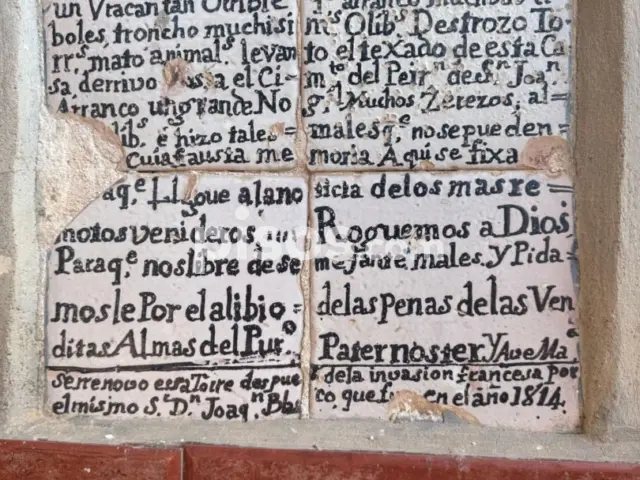 un Vracan tan Orrible arranco muchas
boles, troncho muchisi mˢ Olibˢ Destrozo To-
rrˢ mato animalˢ levan to el texado de esta Ca
sa, derrivo el Ci- mᵗᵒ del Peirⁿ de Sⁿ Joaqⁿ
Arranco un grande No gˡ Muchos Zerezos, al=
libˢ e hizo tales= males qᵉ no se pueden=
Cuia fausta me moria Aqui se fixa
aqᵉ Llegue a la no ticia de los mas re=
motos venideros, Roguemos a Dios,
Paraqᵉ nos libre de se mejante males. y Pida
mosle Por el alibio= de las Penas de las Ven
ditas Almas del Purᵒ Paternoster y Ave Ma
Se renovo essa Torre despue de la invasion francesa Por
el mismo Sʳ Dⁿ Joaqⁿ Bla co que en el año 1814.